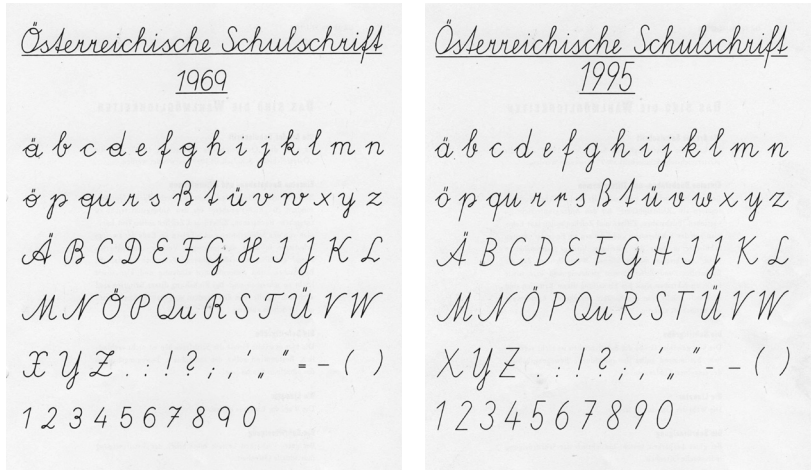 Österreichische Schulschrift
1969
ä b c d e f g h i j k l m n
ö p qu r s ß t ü v w x y z
Ä B C D E F G H I J K L
M N Ö P Qu R S T Ü V W
X Y Z . : ! ? ; , ' „ " = - ( )
1 2 3 4 5 6 7 8 9 0
Österreichische Schulschrift
1995
ä b c d e f g h i j k l m n
ö p qu r r s ß t ü v w x y z
Ä B C D E F G H I J K L
M N Ö P Qu R S T Ü V W
X Y Z . : ! ? ; , ' „ " - – ( )
1 2 3 4 5 6 7 8 9 0